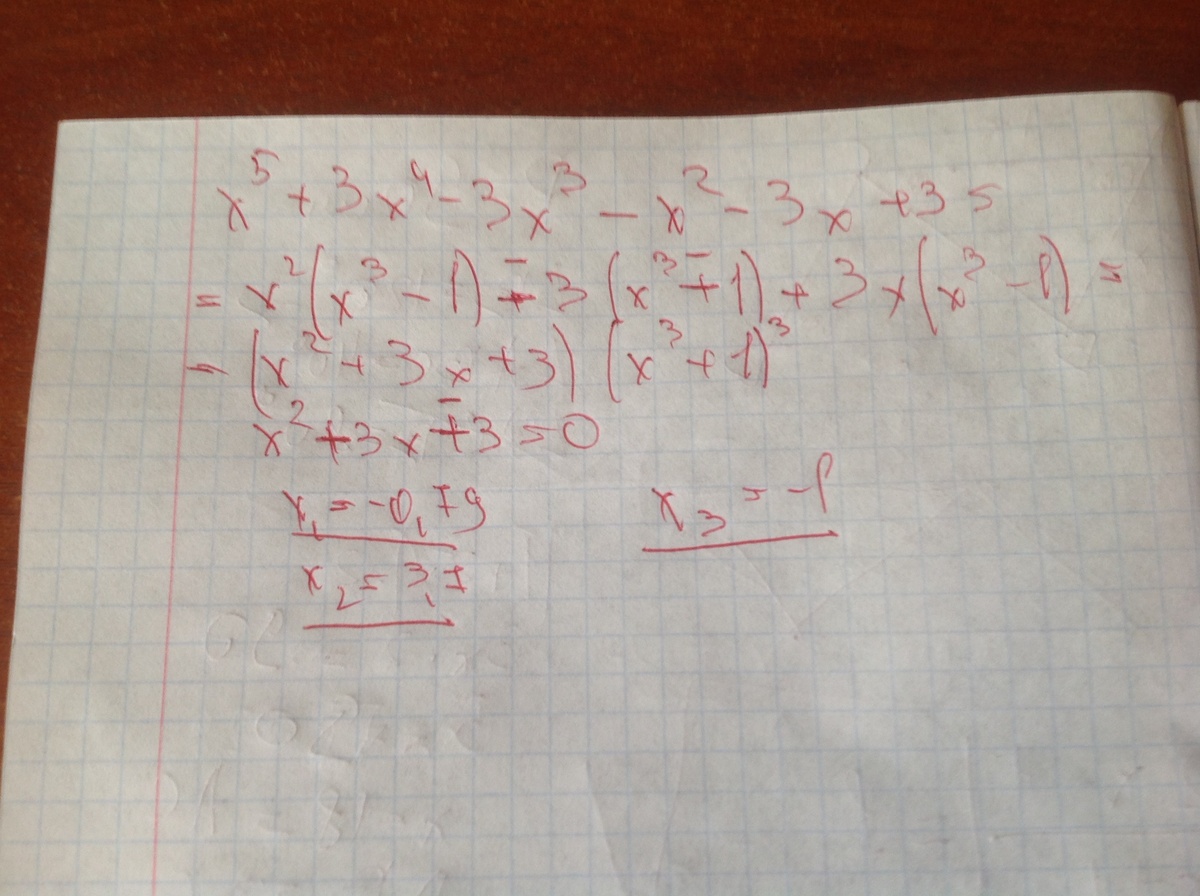 x⁵ + 3x⁴ - 3x³ - x² - 3x + 3 =
= x²(x³ - 1) - 3(x³ - 1) + 3x(x³ - 1) =
= (x² + 3x + 3)(x³ + 1)³
x² + 3x - 3 = 0
x₁ = -0,79
x₃ = -1
x₂ = 3,7